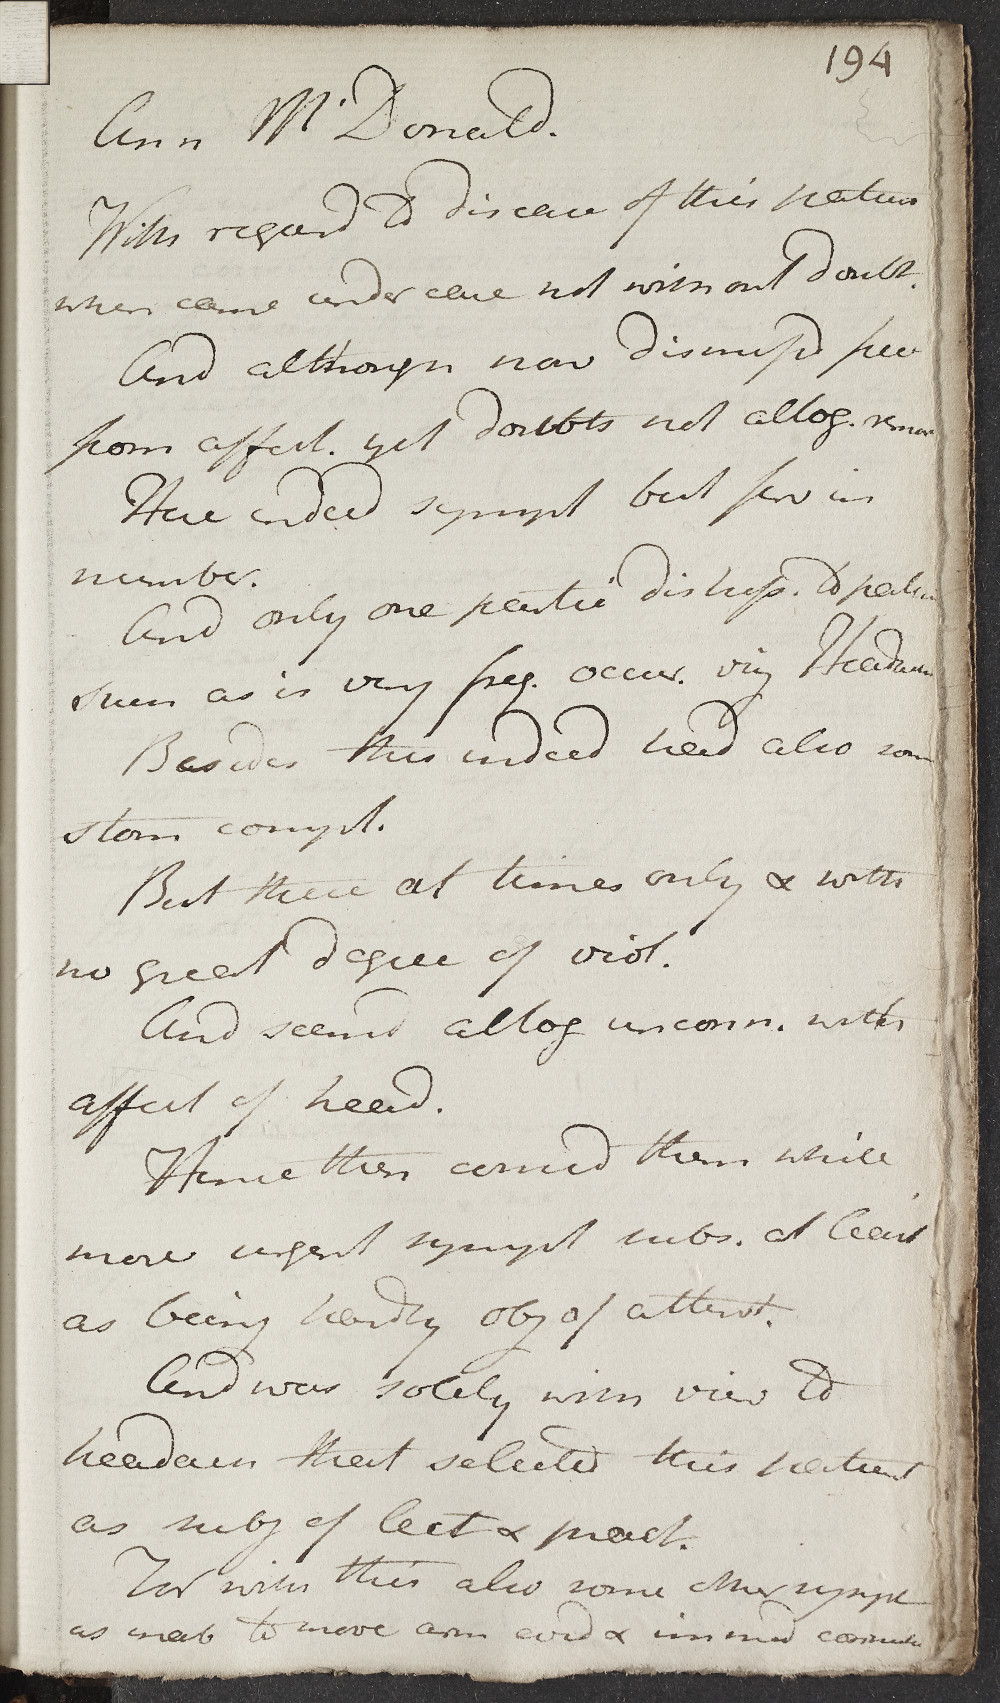 194
Ann McDonald.
With regard to disease of this patient
when came under care not without doubt.
And although now dismissd free
from affect. yet doubts not altog. remov
Here indeed sympt but few in
number.
And only one partic distress. to patien
such as is very freq. occur. viz Headach
Besides this indeed head also som
stom compl.
But these at times only & with
no great degree of viol.
And seemd altog unconn. with
affect of head.
Hence then considd them while
more urgent sympt subs. at least
as being hardly obj of attent.
And was solely with view to
headach that selected this patient
as subj of lect & pract.
For with this also some other sympt
as inab to move arm evid & immed